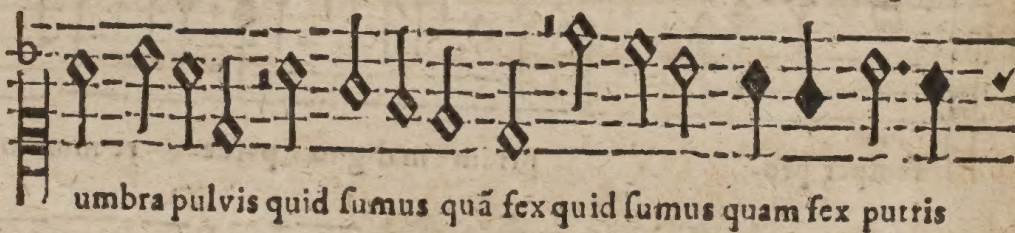 umbra pulvis quid ſumus quã fex quid ſumus quam fex putris